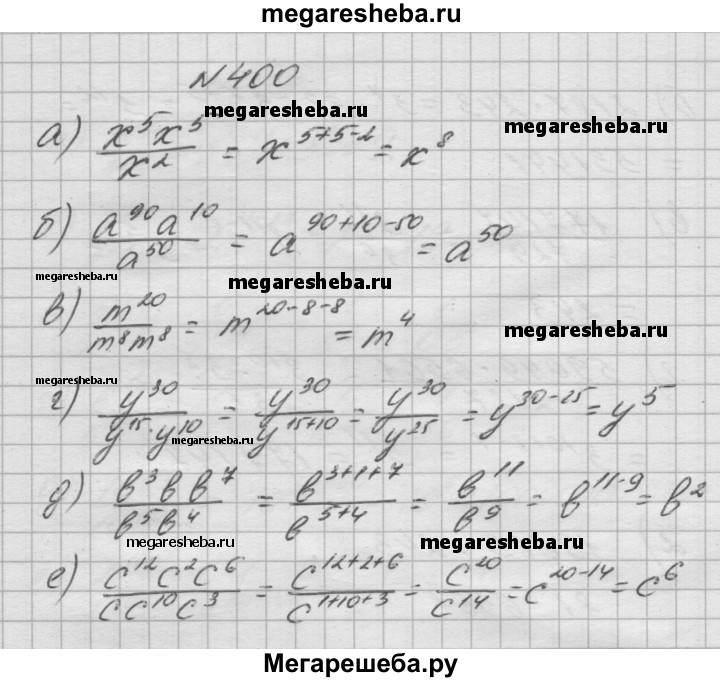 megaresheba.ru
№400
megaresheba.ru
а) x⁵x⁵/x² = x⁵⁺⁵⁻² = x⁸
megaresheba.ru
б) a⁹⁰a¹⁰/a⁵⁰ = a⁹⁰⁺¹⁰⁻⁵⁰ = a⁵⁰
megaresheba.ru
megaresheba.ru
в) m²⁰/m⁸m⁸ = m²⁰⁻⁸⁻⁸ = m⁴
megaresheba.ru
megaresheba.ru
г) y³⁰/y¹⁵·y¹⁰ = y³⁰/y¹⁵⁺¹⁰ = y³⁰/y²⁵ = y³⁰⁻²⁵ = y⁵
megaresheba.ru
д) b³b b⁷/b⁵b⁴ = b³⁺¹⁺⁷/b⁵⁺⁴ = b¹¹/b⁹ = b¹¹⁻⁹ = b²
megaresheba.ru
megaresheba.ru
е) c¹²c²c⁶/cc¹⁰c³ = c¹²⁺²⁺⁶/c¹⁺¹⁰⁺³ = c²⁰/c¹⁴ = c²⁰⁻¹⁴ = c⁶
Мегарешеба.ру